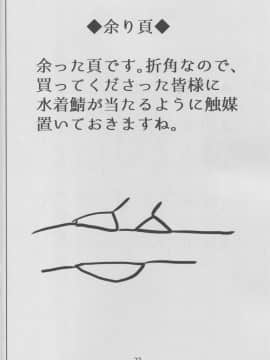 ◆余り頁◆
余った頁です。折角なので、
買ってくださった皆様に
水着鯖が当たるように触媒
置いておきますね。